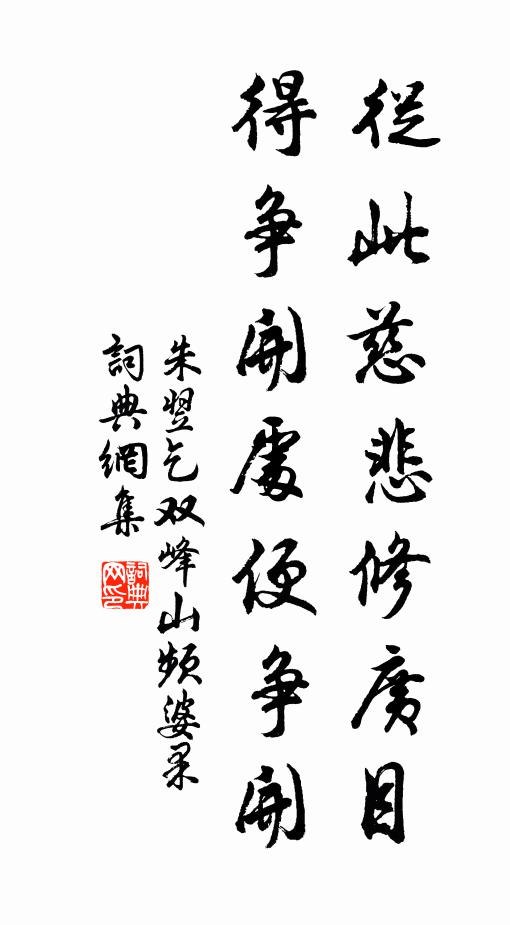 從此慈悲修廣目
得争開處便争開
朱翌乞双峰山頻婆果
詞典網集
詞典網印